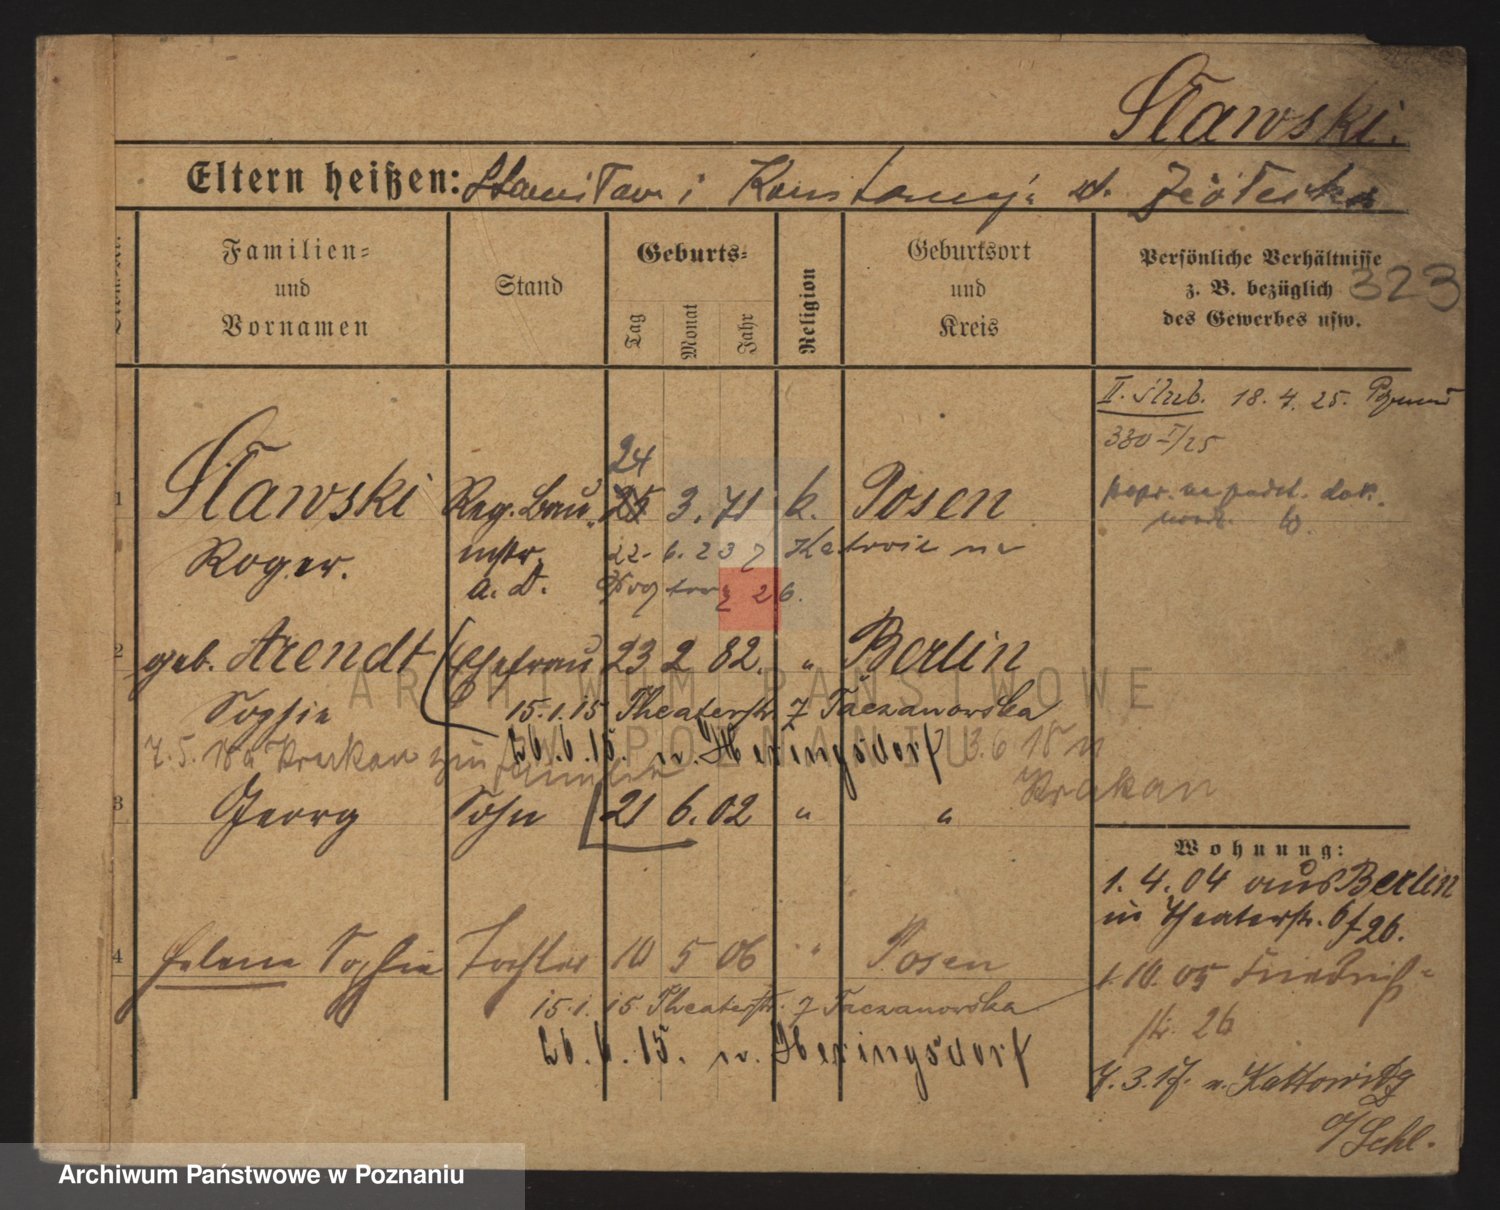 Sławski.
Eltern heißen: Stanisław i Konstancja d. Ziółecka
Familien=
und
Vornamen
Stand
Geburts=
Tag
Monat
Jahr
Religion
Geburtsort
und
Kreis
Persönliche Verhältnisse
z. B. bezüglich
des Gewerbes usw.
323
II. Ślub. 18.4.25.
380 I/25
24
1 Sławski Reg. Bau 25 3. 71 k. Posen
Roger. mstr. 22. 6. 23 z Katowic
a. D. 26.
2 geb. Arendt Ehefrau 23 2 82. " Berlin
Sophie 15.1.15 Theaterstr. 7 Taczanowska
7.5.18 a Krakau zur Familie 26.6.15. n. Heringsdorf 3.6 18 n
Krakau
3 Georg Sohn 21 6. 02 " "
Wohnung:
1.4.04 aus Berlin
in Theaterstr. 6 f 26.
4 Helene Sophie Tochter 10 5 06 " Posen
1.10.05 Friedrich-
str. 26
15.1.15 Theaterstr. 7 Taczanowska
26.6.15. n. Heringsdorf
7.3.17. n. Kattowitz
O/Schl.
ARCHIWUM PAŃSTWOWE
W POZNANIU
Archiwum Państwowe w Poznaniu